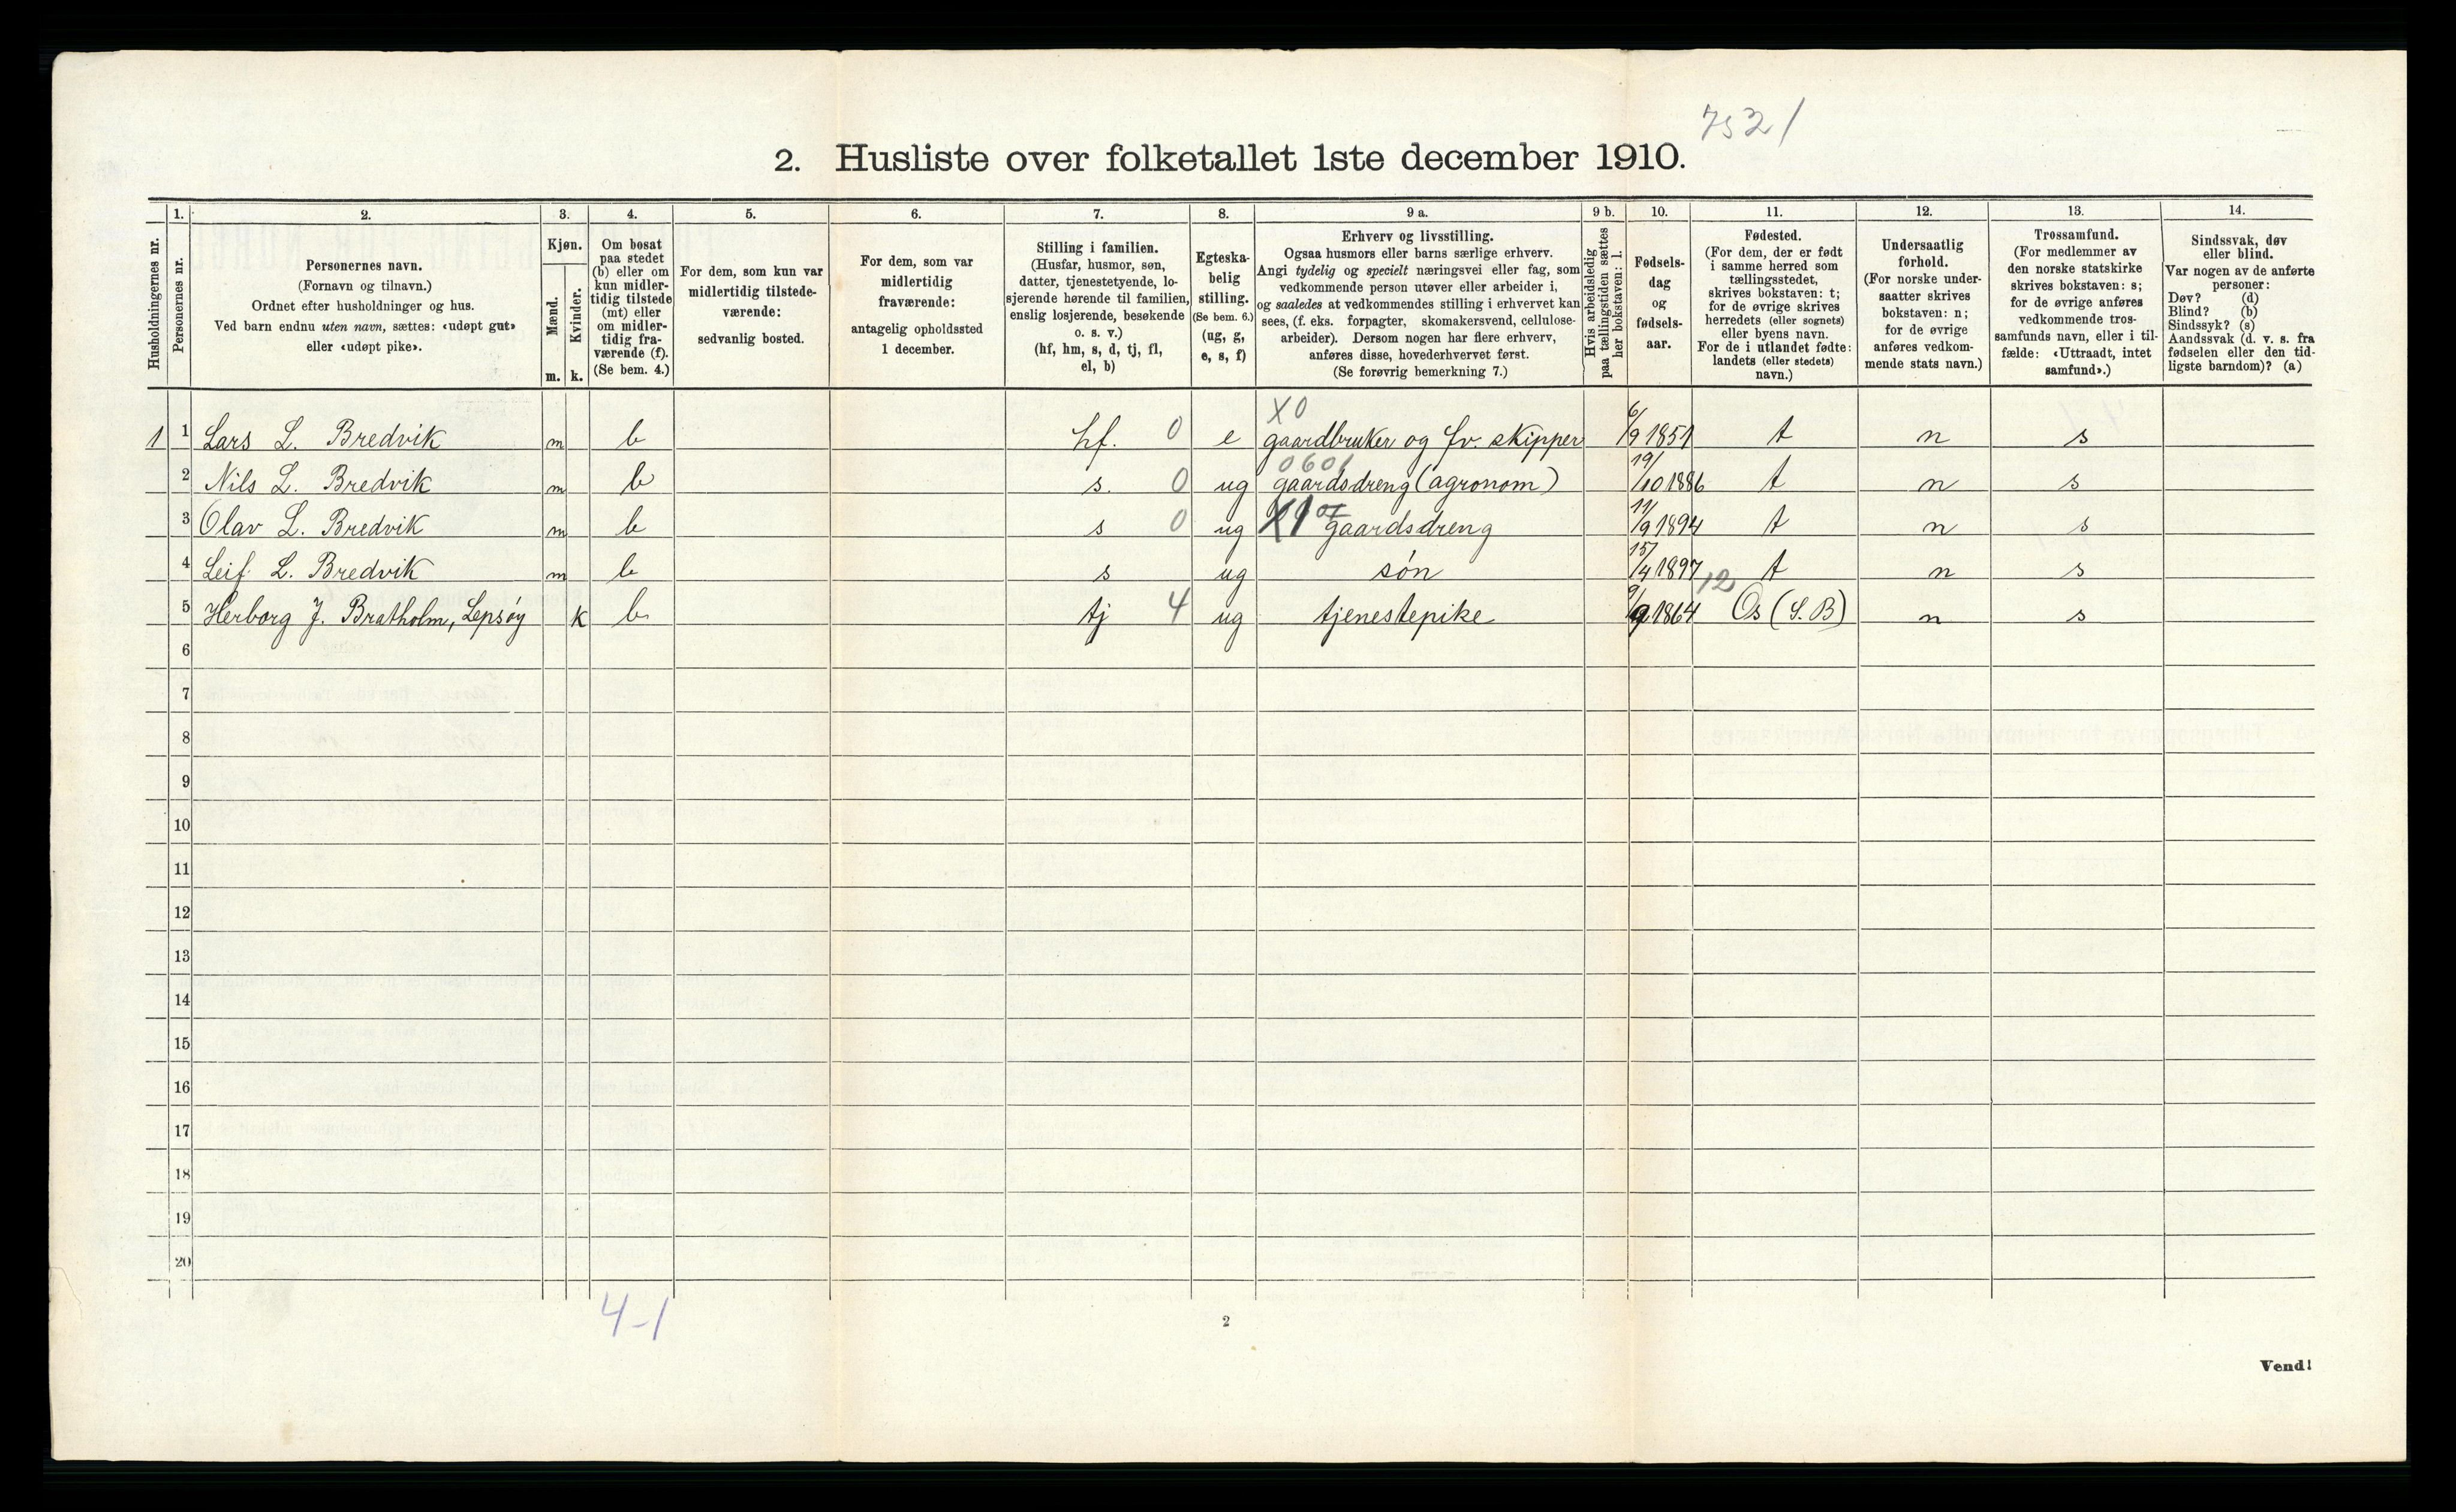 7521
2. Husliste over folketallet 1ste december 1910.
Husholdningernes nr.
1.
Personernes nr.
2.
Personernes navn.
(Fornavn og tilnavn.)
Ordnet efter husholdninger og hus.
Ved barn endnu uten navn, sættes: «udøpt gut»
eller «udøpt pike».
3.
Kjøn.
Mænd.
Kvinder.
m. k.
4.
Om bosat
paa stedet
(b) eller om
kun midler-
tidig tilstede
(mt) eller
om midler-
tidig fra-
værende (f).
(Se bem. 4.)
5.
For dem, som kun var
midlertidig tilstede-
værende:
sedvanlig bosted.
6.
For dem, som var
midlertidig
fraværende:
antagelig opholdssted
1 december.
7.
Stilling i familien.
(Husfar, husmor, søn,
datter, tjenestetyende, lo-
sjerende hørende til familien,
enslig losjerende, besøkende
o. s. v.)
(hf, hm, s, d, tj, fl,
el, b)
8.
Egteska-
belig
stilling.
(Se bem. 6.)
(ug, g,
e, s, f)
9 a.
Erhverv og livsstilling.
Ogsaa husmors eller barns særlige erhverv.
Angi tydelig og specielt næringsvei eller fag, som
vedkommende person utøver eller arbeider i,
og saaledes at vedkommendes stilling i erhvervet kan
sees, (f. eks. forpagter, skomakersvend, cellulose-
arbeider). Dersom nogen har flere erhverv,
anføres disse, hovederhvervet først.
(Se forøvrig bemerkning 7.)
9 b.
Hvis arbeidsledig
paa tællingstiden sættes
her bokstaven: l.
10.
Fødsels-
dag
og
fødsels-
aar.
11.
Fødested.
(For dem, der er født
i samme herred som
tællingsstedet,
skrives bokstaven: t;
for de øvrige skrives
herredets (eller sognets)
eller byens navn.
For de i utlandet fødte:
landets (eller stedets)
navn.)
12.
Undersaatlig
forhold.
(For norske under-
saatter skrives
bokstaven: n;
for de øvrige
anføres vedkom-
mende stats navn.)
13.
Trossamfund.
(For medlemmer av
den norske statskirke
skrives bokstaven: s;
for de øvrige anføres
vedkommende tros-
samfunds navn, eller i til-
fælde: «Uttraadt, intet
samfund».)
14.
Sindssvak, døv
eller blind.
Var nogen av de anførte
personer:
Døv? (d)
Blind? (b)
Sindssyk? (s)
Aandssvak (d. v. s. fra
fødselen eller den tid-
ligste barndom)? (a)
X0
1 1 Lars L. Bredvik m b hf. 0 e gaardbruker og fv. skipper 6/9 1851 t n s
0601
2 Nils L. Bredvik m b s. 0 ug gaardsdreng (agronom) 19/10 1886 t n s
3 Olav L. Bredvik m b s 0 ug X1 gaardsdreng 11/9 1894 t n s
4 Leif L. Bredvik m b s ug søn 15/4 1897 t n s
12
5 Herborg J. Bratholm, Lepsøy k b tj 4 ug tjenestepike 9/9 1864 Os (S.B) n s
6
7
8
9
10
11
12
13
14
15
16
17
18
19
20
4-1
2
Vend!